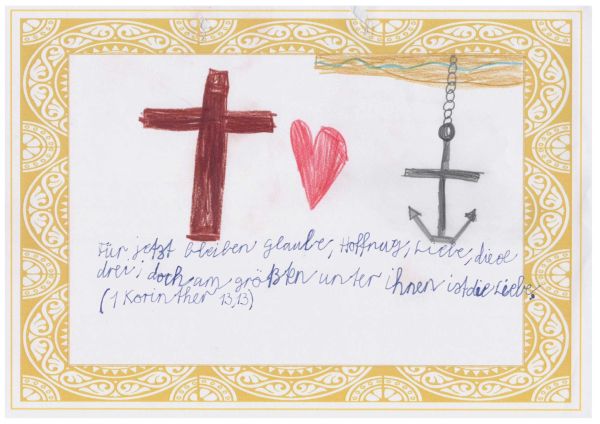 Für jetzt bleiben glaube, Hoffnug, Liebe, diese
drei, doch am größten unter ihnen ist die Liebe.
(1 Korinther 13,13)